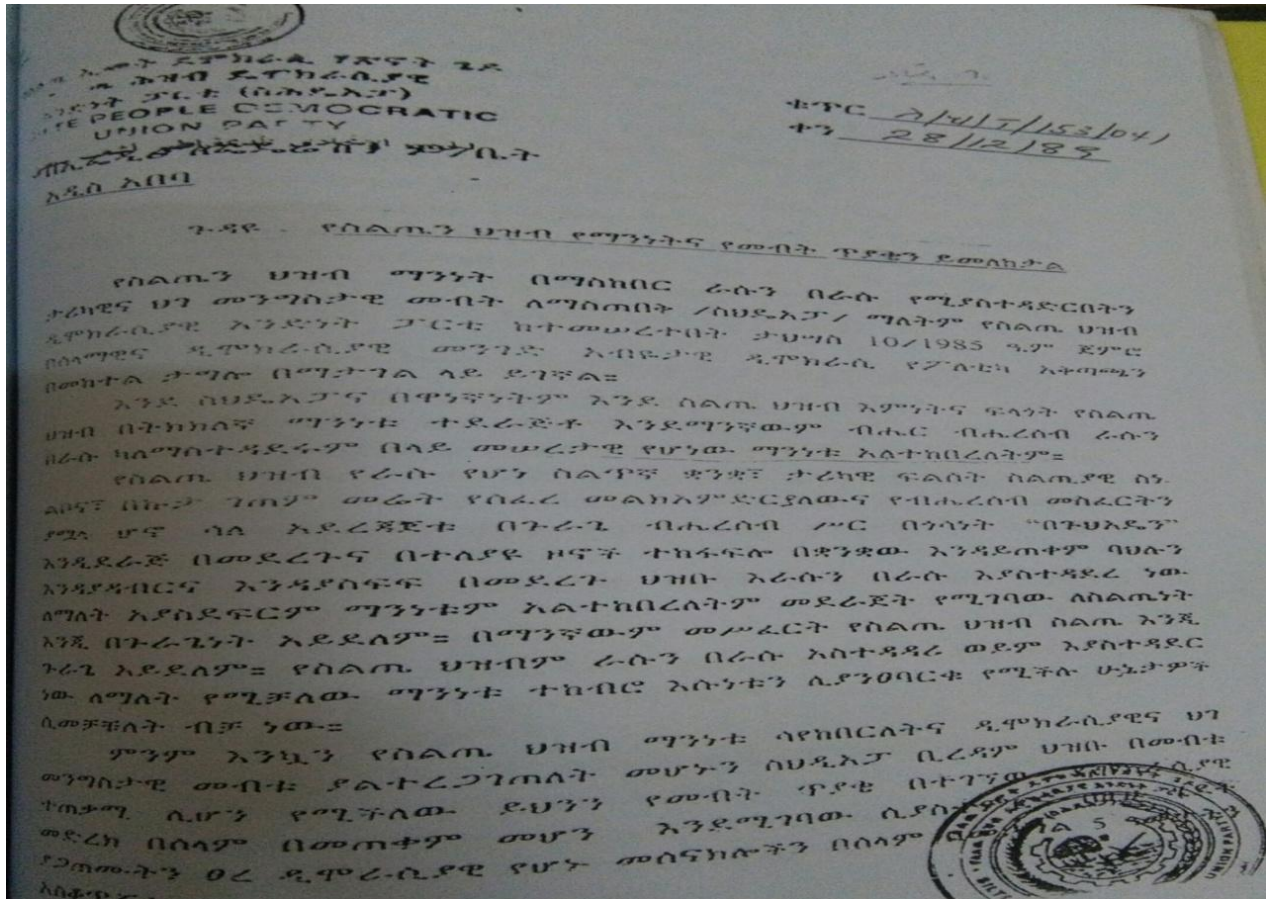 ሕዝብ ዴሞክራሲያዊ
አንድነት ፓርቲ (ስሕዴአፓ)
PEOPLE DEMOCRATIC
UNION PARTY
ቁጥር
ቀን 28/12/89
አዲስ አበባ
ጉዳዩ . የስልጤን ህዝብ የማንነትና የመብት ጥያቄን ይመለከታል
የስልጤን ህዝብ ማንነት በማስከበር ራሱን በራሱ የሚያስተዳድርበትን
ታሪካዊና ህገ መንግስታዊ መብት ለማስጠበት /ስህዴአፓ/ ማለትም የስልጤ ህዝብ
ዲሞክራሲያዊ አንድነት ፓርቲ ከተመሠረተበት ታህሣስ 10/1985 ዓ.ም ጀምሮ
በሰላማዊና ዲሞክራሲያዊ መንገድ አብዮታዊ ዲሞክራሲ የፖለቲካ አቅጣጫን
በመከተል ታግሎ በማታገል ላይ ይገኛል=
እንደ ስህዴአፓና በዋነኛነትም እንደ ስልጤ ህዝብ እምነትና ፍላጎት የስልጤ
ህዝብ በትክክለኛ ማንነቱ ተደራጅቶ እንደማንኛውም ብሔር ብሔረሰብ ራሱን
በራሱ ካለማስተዳደሩም በላይ መሠረታዊ የሆነው ማንነቱ አልተከበረለትም=
የስልጤ ህዝብ የራሱ የሆነ ስልጥኛ ቋንቋ፣ ታሪካዊ ፍልሰት ስልጤያዊ ስነ
ልቦና፣ በኩታ ገጠም መሬት የሰፈረ መልክአምድርያለውና የብሔረሰብ መስፈርትን
ያሟላ ሆኖ ሳለ አደረጃጀቱ በጉራጌ ብሔረሰብ ሥር በጎሳነት "በጉህአዴን"
እንዲደራጅ በመደረጉና በተለያዩ ዞኖች ተከፋፍሎ በቋንቋው እንዳይጠቀም ባህሉን
እንዳያዳብርና እንዳያስፍፍ በመደረጉ ህዝቡ እራሱን በራሱ እያስተዳደረ ነው
ለማለት አያስደፍርም ማንነቱም አልተከበረለትም መደራጀት የሚገባው ለስልጤነት
እንጂ በጉራጌነት አይደለም= በማንኛውም መሥፈርት የስልጤ ህዝብ ስልጤ እንጂ
ጉራጌ አይደለም= የስልጤ ህዝብም ራሱን በራሱ አስተዳዳሪ ወይም እያስተዳደር
ነው ለማለት የሚቻለው ማንነቱ ተከብሮ እሱነቱን ሊያንፀባርቁ የሚችሉ ሁኔታዎች
ሲመቻቹለት ብቻ ነው=
ምንም እንኳን የስልጤ ህዝብ ማንነቱ ሳየከበርለትና ዲሞክራሲያዊና ህገ
መንግስታዊ መብቱ ያልተረጋገጠለት መሆኑን ስህዲአፓ ቢረዳም ህዝቡ በመብቱ
ተጠቃሚ ሊሆን የሚችለው ይህንን የመብት ጥያቄ በተገኘው
መድረክ በሰላም በመጠቀም መሆን እንደሚገባው
ያጋጠሙትን ፀረ ዲሞራሲያዊ የሆኑ መሰናክሎችን በሰላም